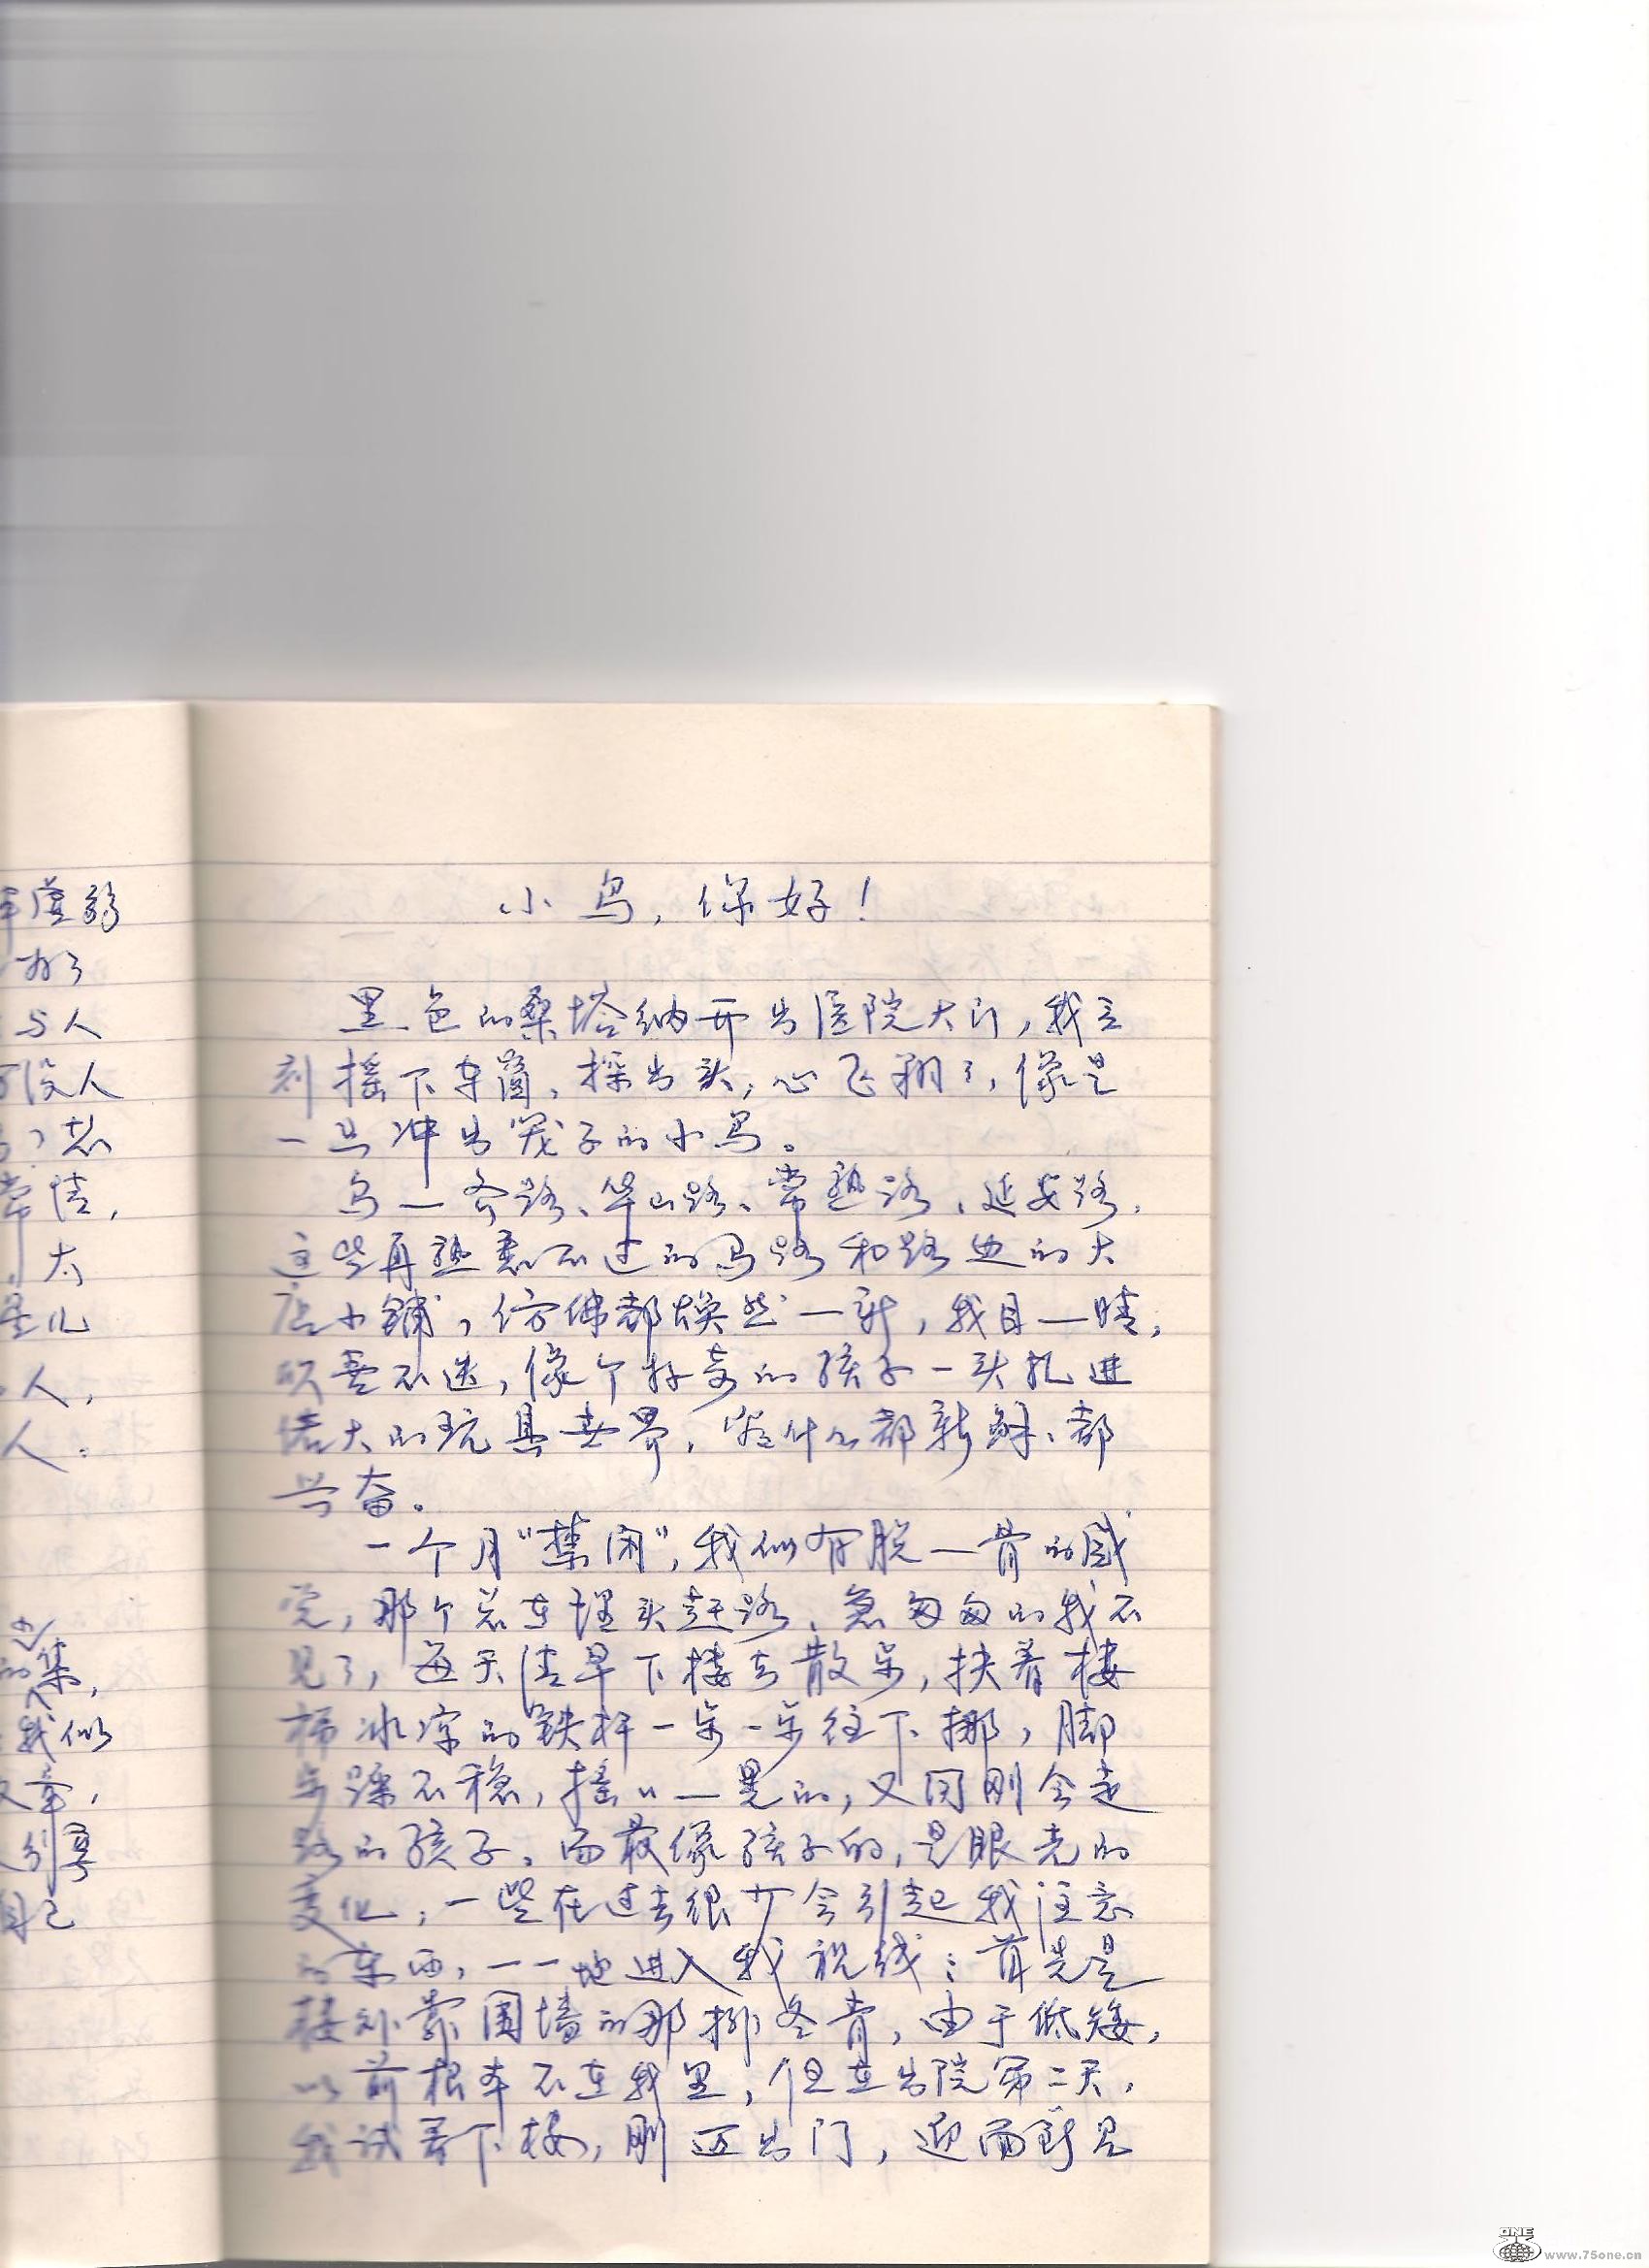 小鸟,你好!
黑色的桑塔纳开出医院大门,我立
刻摇下车窗,探出头,心飞翔了,像是
一只冲出笼子的小鸟。
乌一齐路、华山路、常熟路、延安路,
这些再熟悉不过的马路和路边的大
店小铺,仿佛都焕然一新,我目一睛,
像个好奇的孩子一头扎进
偌大的玩具世界,什么都新鲜、都
兴奋。
一个月“禁闭”,我似有脱一骨的感
觉,那个总在埋头赶路、急匆匆的我不
见了,每天清早下楼去散步,扶着楼
梯冰凉的铁杆一步一步往下挪,脚
步踩不稳,摇〃一晃的,又同刚会走
路的孩子。而最像孩子的,是眼光的
变化,一些在过去很少会引起我注意
的东西,一一地进入我视线:首先是
楼外靠围墙的那排冬青,由于低矮,
以前根本不在我里,但在出院第二天,
我试着下楼,刚迈出门,迎面就见
虚弱
与人
没人
常情,
人,
人:
我似
文章,
自己
ONE
www.75one.cn